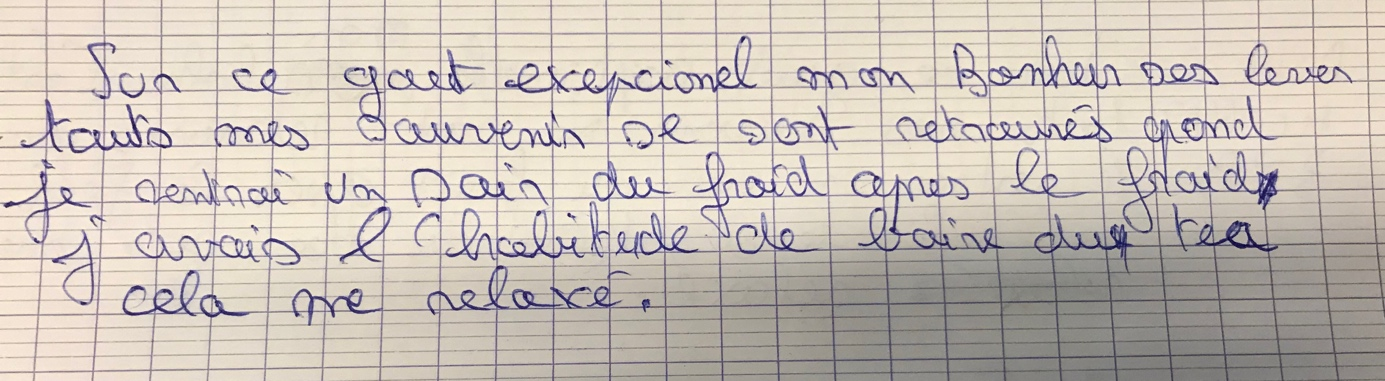 Sur ce gout exepcionel mon Bonheur ses lever
touts mes sauvenir se sont retrouvés qond
je rentrai un soir du froid apres le froid
j'avais l'habitude de boire du tea
cela me relaxé.